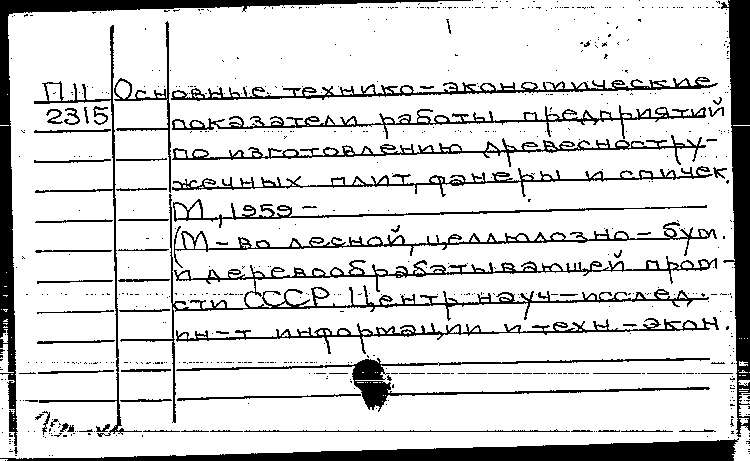 П11 Основные технико-экономические
2315 показатели работы предприятий
по изготовлению древесностру-
жечных плит, фанеры и спичек.
М., 1959 -
(М-во лесной, целлюлозно-бум.
и деревообрабатывающей пром-
сти СССР. Центр. науч-исслед.
ин-т информации и техн.-экон.